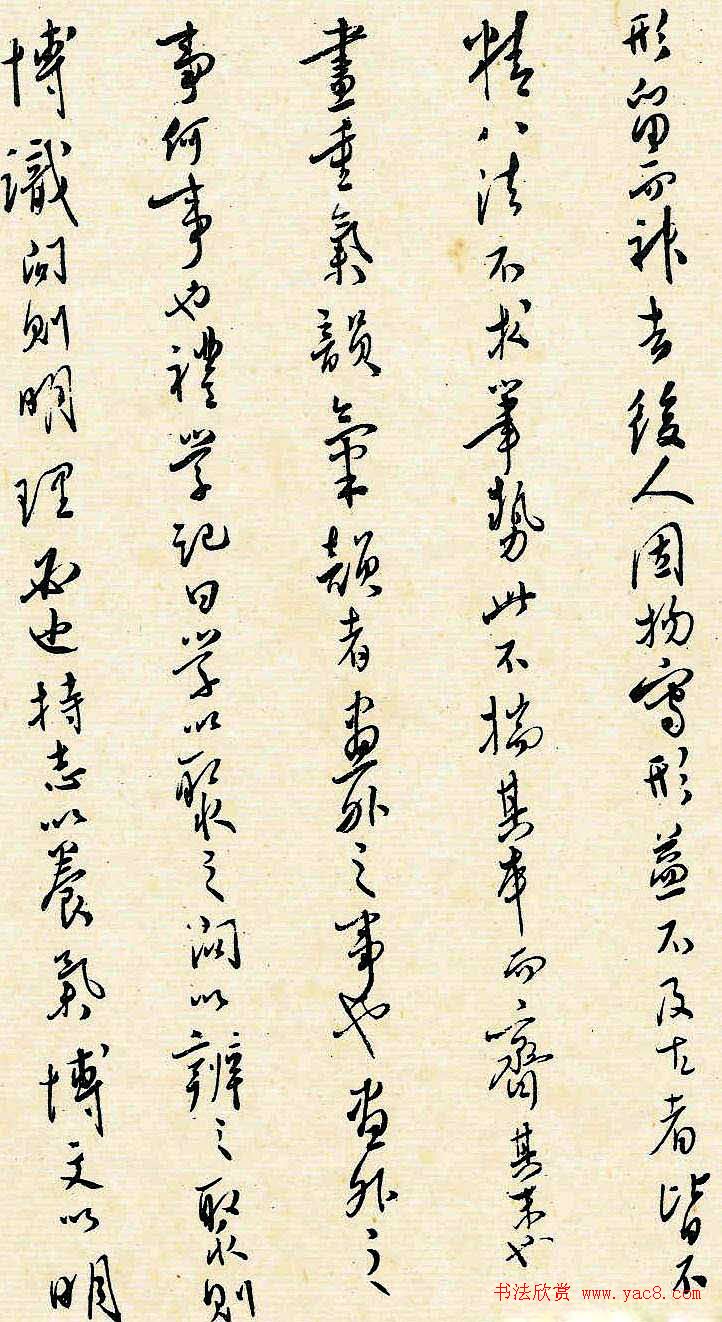 形留而神去後人因物寫形益不及古者皆不
精八法不求筆勢此不揣其本而齊其末也
畫重氣韻氣韻者畫外之事也畫外之
事何事也禮學記曰學以聚之問以辨之聚則
博識問則明理此也持志以養氣博文以明
书法欣赏 www.yac8.com